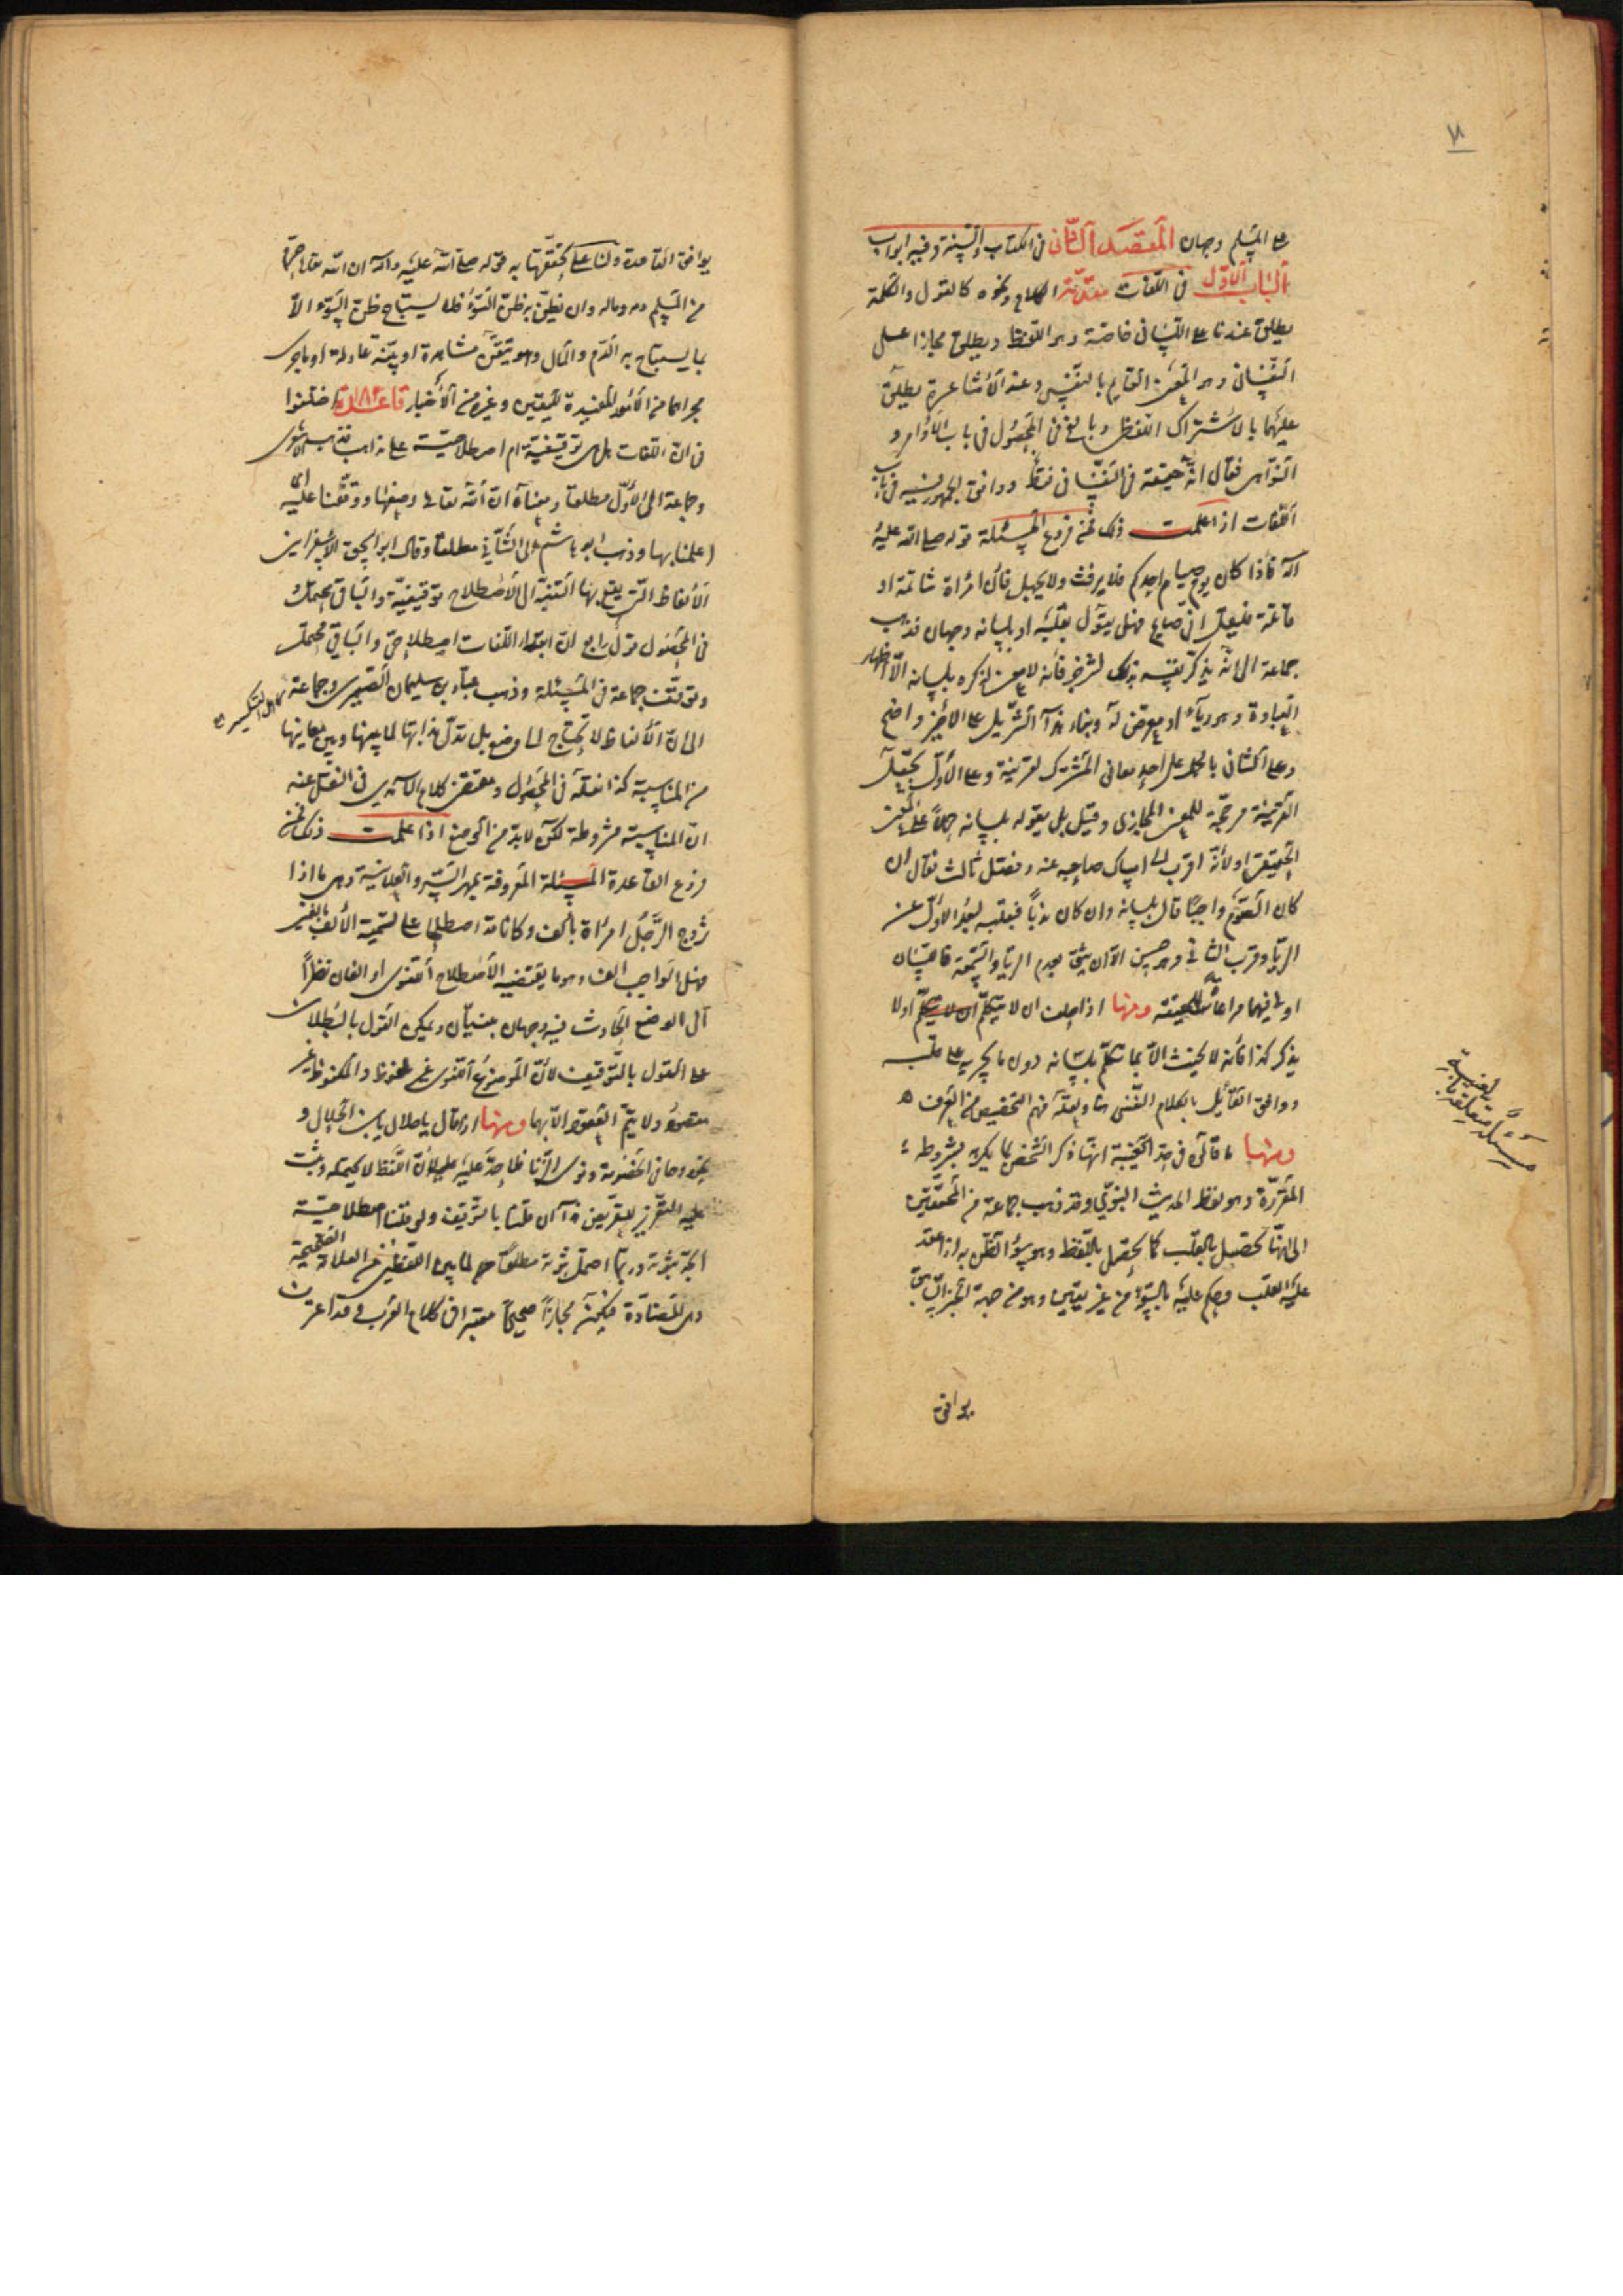 ٧١
على المسلم وجهان المقصد الثاني في الكتاب والسنة وفيه ابواب
الباب الاول في اللغات مقدمة الكلام ونحوه كالقول والكلمة
يطلق عندنا على اللساني خاصة وهو اللفظ ويطلق مجازا على
النفساني وهو المعنى القايم بالنفس وعند الاشاعرة يطلق
عليهما بالاشتراك اللفظي وبالغ في المحصول في باب الاوامر و
النواهي فقال انه حقيقة في النفساني فقط ووافق الجمهور فيه في باب
اللغات اذا علمت ذلك فمن فروع المسئلة قوله صلى الله عليه
وآله فاذا كان يوم صيام احدكم فلا يرفث ولا يجهل فان امرأة شاتمه او
قاتله فليقل اني صايم فهل يقول بقلبه او بلسانه وجهان فذهب
جماعة الى انه يذكر نفسه بذلك لينزجر فانه لا معنى لذكره بلسانه الا اظهار
العبادة وهو رياء او معرض له وبناء هذا التنزيل على الاخير واضح
وعلى الثاني بالحمل على احد معاني المشترك لقرينة وعلى الاول بجعل
القرينة مرجحة للمعنى المجازي وقيل بل يقوله بلسانه حملا على المعنى
الحقيقي ولانه اقرب الى امساك صاحبه عنه وفصل ثالث فقال ان
كان الصوم واجبا قال بلسانه وان كان ندبا فبقلبه لبعد الاول عن
الريا وقرب الثاني وهو حسن الا ان يثق بعدم الريا والسمعة فاللسان
اولى فيهما مراعاة للحقيقة ومنها اذا حلف ان لا يتكلم او لا
يذكر كذا فانه لا يحنث الا بما تكلم بلسانه دون ما يجريه على قلبه
ووافق القائل بالكلام النفسي هنا ولعله فهم التخصيص من العرف
ومنها ما قالوه في حد الغيبة انها ذكر الشخص بما يكره بشروطه
المقررة وهو لفظ الحديث النبوي وقد ذهب جماعة من المحققين
الى انها تحصل بالقلب كما يحصل باللفظ وهو سوء الظن به اذا عقد
عليه القلب وحكم عليه بالسوء من غير يقين وهو من جهة التنزيل
يوافق
مسئلة متعلقة بالغيبة
يوافق القاعدة ولنا على تحققها به قوله صلى الله عليه وآله ان الله تعالى حرم
من المسلم دمه وماله وان يظن به ظن السوء فلا يستباح ظن السوء الا
بما يستباح به الدم والمال وهو تيقن مشاهدة او بينة عادلة او ما جرى
مجراهما من الامور المفيدة لليقين وغيره من الاخبار قاعدة اختلفوا
في ان اللغات هل هي توقيفية ام اصطلاحية على مذاهب فذهب الاشعري
وجماعة الى الاول مطلقا ومعناه ان الله تعالى وضعها ووقفنا عليها اي
اعلمنا بها وذهب ابو هاشم الى الثاني مطلقا وقال ابو اسحق الاسفرايني
الالفاظ التي يقع بها التنبيه الى الاصطلاح توقيفية والباقي محتمل و
في المحصول قول رابع ان ابتداء اللغات اصطلاحي والباقي محتمل
وتوقف جماعة في المسئلة وذهب عباد بن سليمان الصيمري وجماعة
كاهل التكسير
الى ان الالفاظ لا تحتاج الى وضع بل تدل بذاتها لما بينها وبين معانيها
من المناسبة كذا نقله في المحصول ومقتضى كلام الآمدي في النقل عنه
ان المناسبة مشروطة لكن لا بد من الوضع اذا علمت ذلك فمن
فروع القاعدة المسئلة المعروفة بمهر السر والعلانية وهي ما اذا
تزوج الرجل امرأة بالف وكانا قد اصطلحا على تسمية الالف بالفين
فهل الواجب الف وهو ما يقتضيه الاصطلاح اللغوي او الفان نظرا
الى الوضع الحادث فيه وجهان مبنيان ويمكن القول بالبطلان
على القول بالتوقيف لان الموضوع اللغوي غير ملحوظ والملحوظ غير
مقصود ولا يتم العقود الا بهما ومنها اذا قال يا حلال يا بن الحلال و
نحوه وهما في الخصومة ونوى الزنا فلا حد عليه لان اللفظ لا يحتمله ويثبت
عليه التعزير للتعريض هذا ان قلنا بالتوقيف ولو قلنا اصطلاحية
اتجه ثبوته وربما احتمل ثبوته مطلقا لما بين اللفظين من العلاقة الصحيحة
وهي المضادة فيكون مجازا صحيحا معتبرا في كلام العرب وقد اعترف